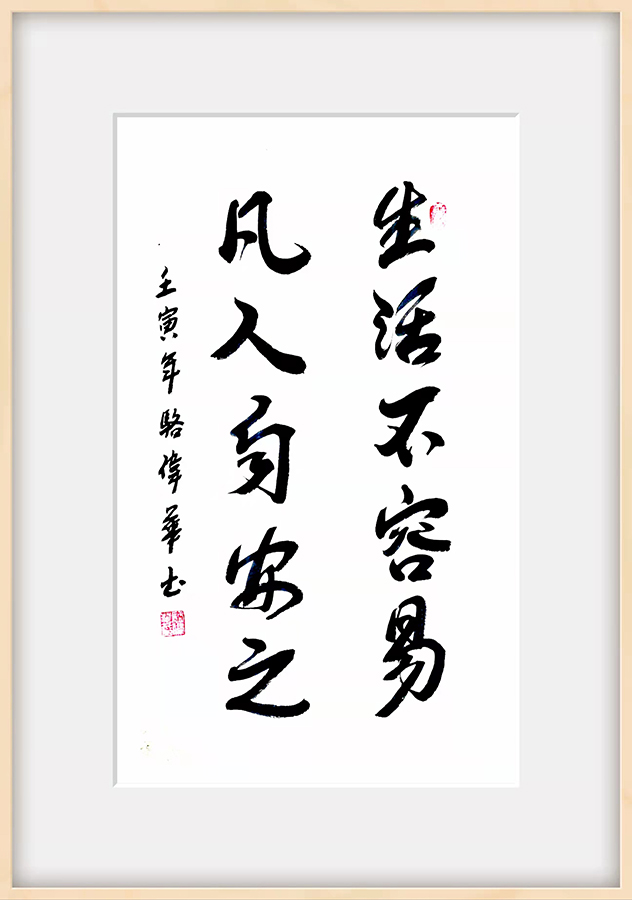 生活不容易
凡人自安之
壬寅年駱偉華书